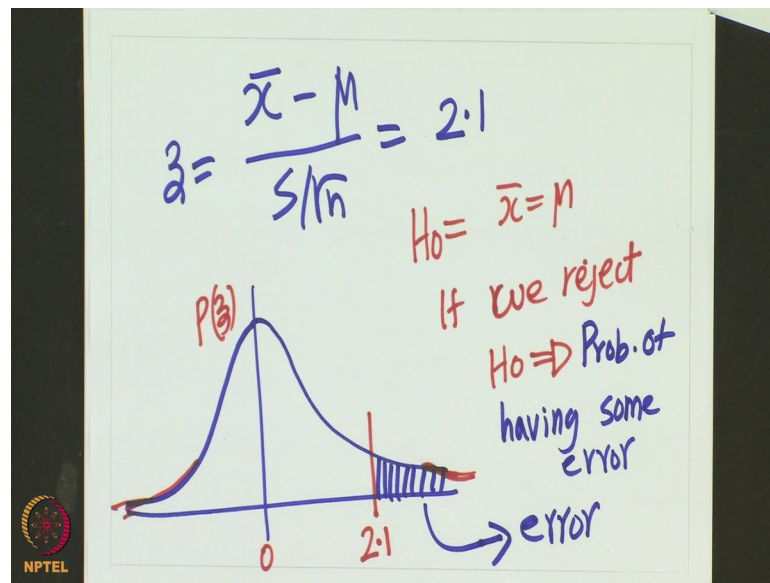 z = x̄ - μ / S/√n = 2.1
H0 = x̄ = μ
If we reject
H0 ⇒ Prob. of
having some
error
P(z)
0
2.1
error
NPTEL